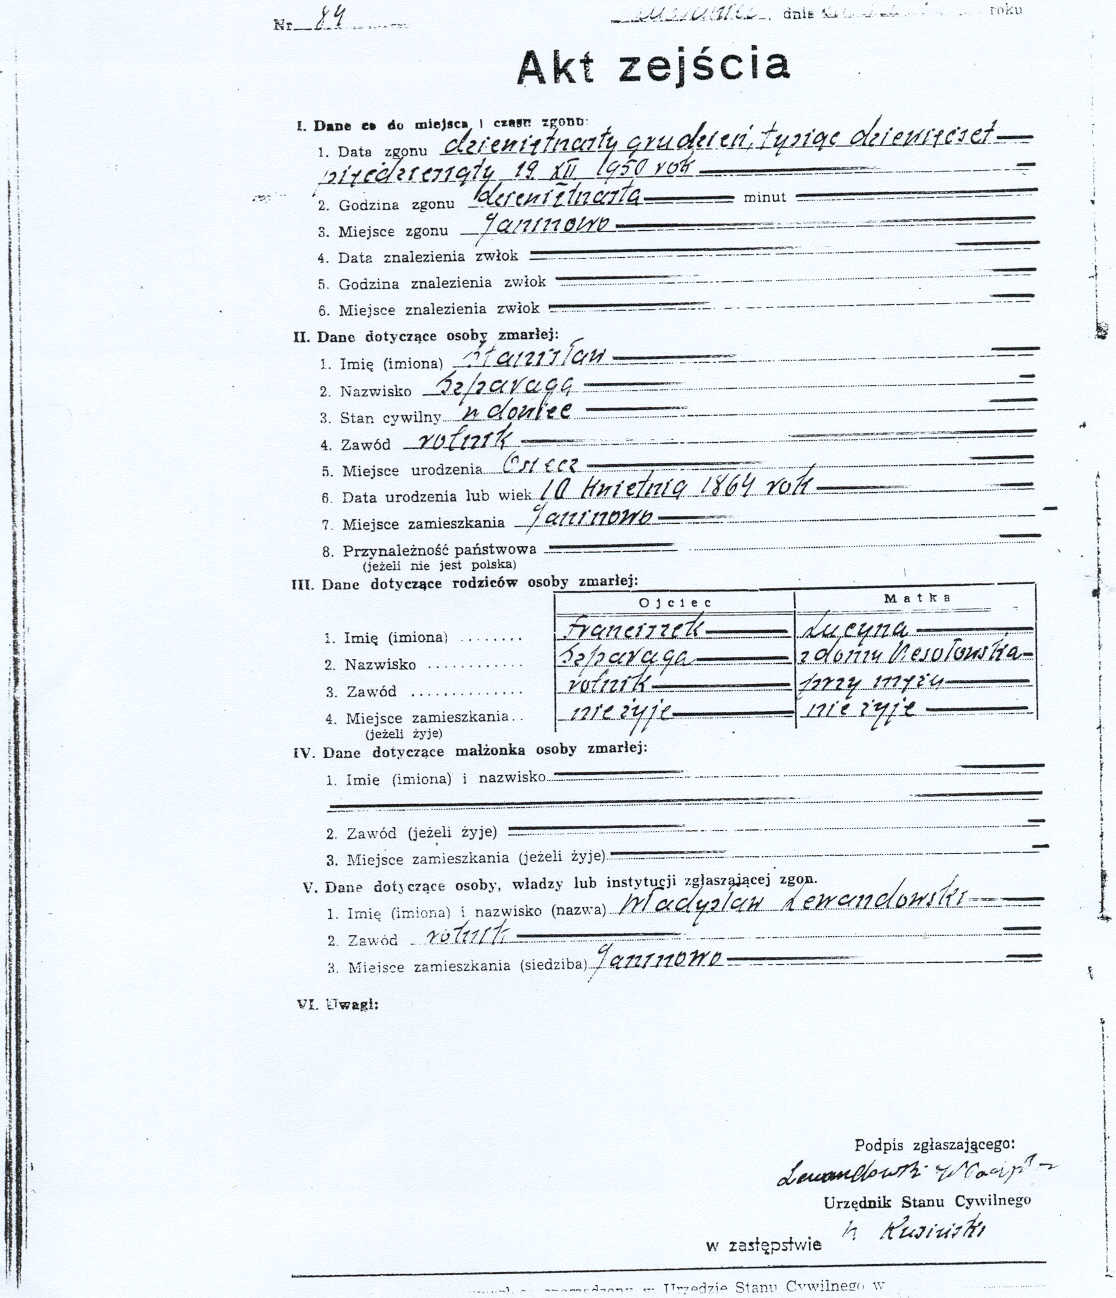 Nr 84 , dnia roku
Akt zejścia
I. Dane co do miejsca i czasu zgonu:
1. Data zgonu dziewiętnasty grudzień, tysiąc dziewięćset
pięćdziesiąty 19 XII 1950 rok
2. Godzina zgonu dziewiętnasta minut
3. Miejsce zgonu Janinowo
4. Data znalezienia zwłok
5. Godzina znalezienia zwłok
6. Miejsce znalezienia zwłok
II. Dane dotyczące osoby zmarłej:
1. Imię (imiona) Stanisław
2. Nazwisko Szparaga
3. Stan cywilny wdowiec
4. Zawód rolnik
5. Miejsce urodzenia Osięcz
6. Data urodzenia lub wiek 10 kwietnia 1864 rok
7. Miejsce zamieszkania Janinowo
8. Przynależność państwowa
(jeżeli nie jest polska)
III. Dane dotyczące rodziców osoby zmarłej:
Ojciec Matka
1. Imię (imiona) ........ Franciszek Lucyna
2. Nazwisko ............ Szparaga z domu Wesołowska
3. Zawód .............. rolnik przy mężu
4. Miejsce zamieszkania.. nie żyje nie żyje
(jeżeli żyje)
IV. Dane dotyczące małżonka osoby zmarłej:
1. Imię (imiona) i nazwisko
2. Zawód (jeżeli żyje)
3. Miejsce zamieszkania (jeżeli żyje)
V. Dane dotyczące osoby, władzy lub instytucji zgłaszającej zgon.
1. Imię (imiona) i nazwisko (nazwa) Władysław Lewandowski
2. Zawód rolnik
3. Miejsce zamieszkania (siedziba) Janinowo
VI. Uwagi:
Podpis zgłaszającego:
Lewandowski
Urzędnik Stanu Cywilnego
w zastępstwie Kusiński
w Urzędzie Stanu Cywilnego w